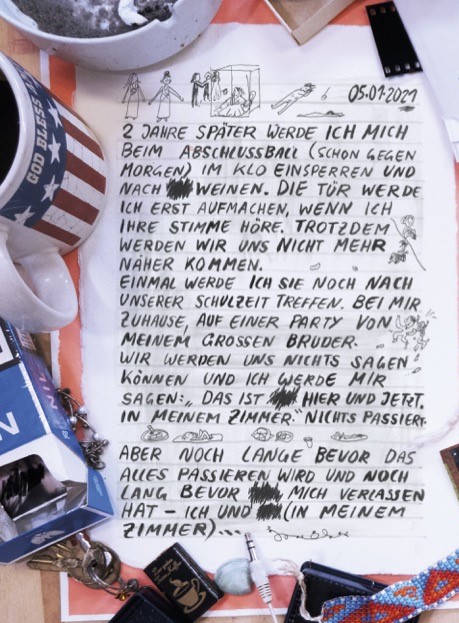 GOD BLESS
05.01.2021
2 JAHRE SPÄTER WERDE ICH MICH
BEIM ABSCHLUSSBALL (SCHON GEGEN
MORGEN) IM KLO EINSPERREN UND
NACH WEINEN. DIE TÜR WERDE
ICH ERST AUFMACHEN, WENN ICH
IHRE STIMME HÖRE. TROTZDEM
WERDEN WIR UNS NICHT MEHR
NÄHER KOMMEN.
EINMAL WERDE ICH SIE NOCH NACH
UNSERER SCHULZEIT TREFFEN. BEI MIR
ZUHAUSE, AUF EINER PARTY VON
MEINEM GROSSEN BRUDER.
WIR WERDEN UNS NICHTS SAGEN
KÖNNEN UND ICH WERDE MIR
SAGEN: „DAS IST HIER UND JETZT.
IN MEINEM ZIMMER." NICHTS PASSIERT.
ABER NOCH LANGE BEVOR DAS
ALLES PASSIEREN WIRD UND NOCH
LANG BEVOR MICH VERLASSEN
HAT – ICH UND (IN MEINEM
ZIMMER)...